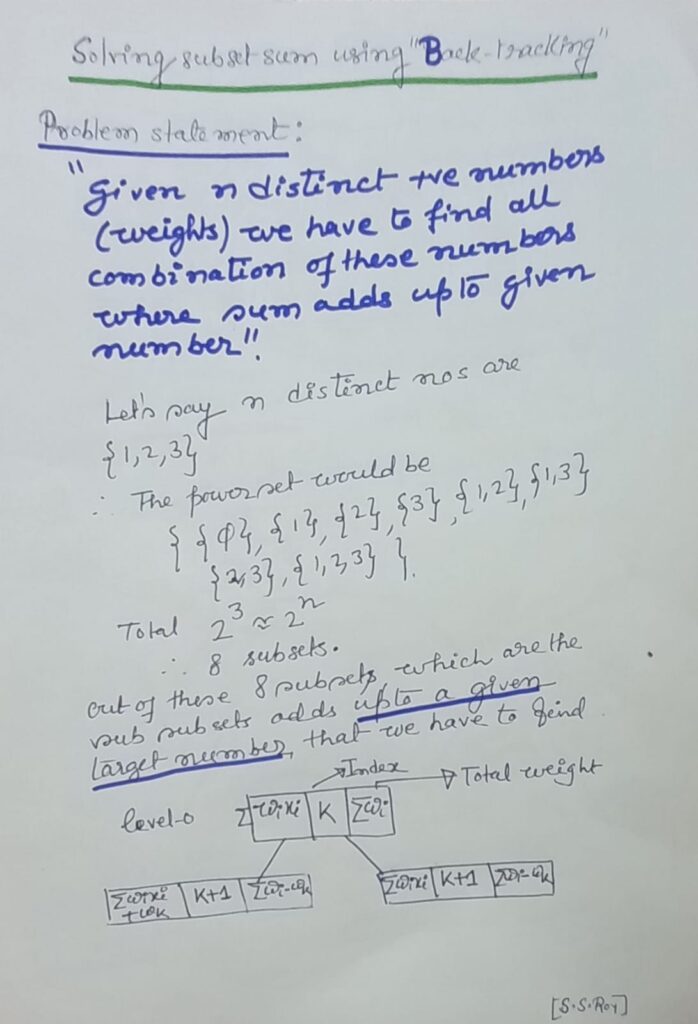 Solving subset sum using "Back-tracking"
Problem statement:
"Given n distinct +ve numbers
(weights) we have to find all
combination of these numbers
where sum adds upto given
number".
Let's say n distinct nos are
{1,2,3}
∴ The power set would be
{ {φ}, {1}, {2}, {3}, {1,2}, {1,3}
{2,3}, {1,2,3} }.
Total 2³ ≈ 2ⁿ
∴ 8 subsets.
out of these 8 subsets, which are the
sub subsets adds upto a given
target number, that we have to find.
Index Total weight
level-0 Σwixi K Σwi
Σwixi +wk K+1 Σwi-wk Σwixi K+1 Σwi-wk
[S.S.Roy]